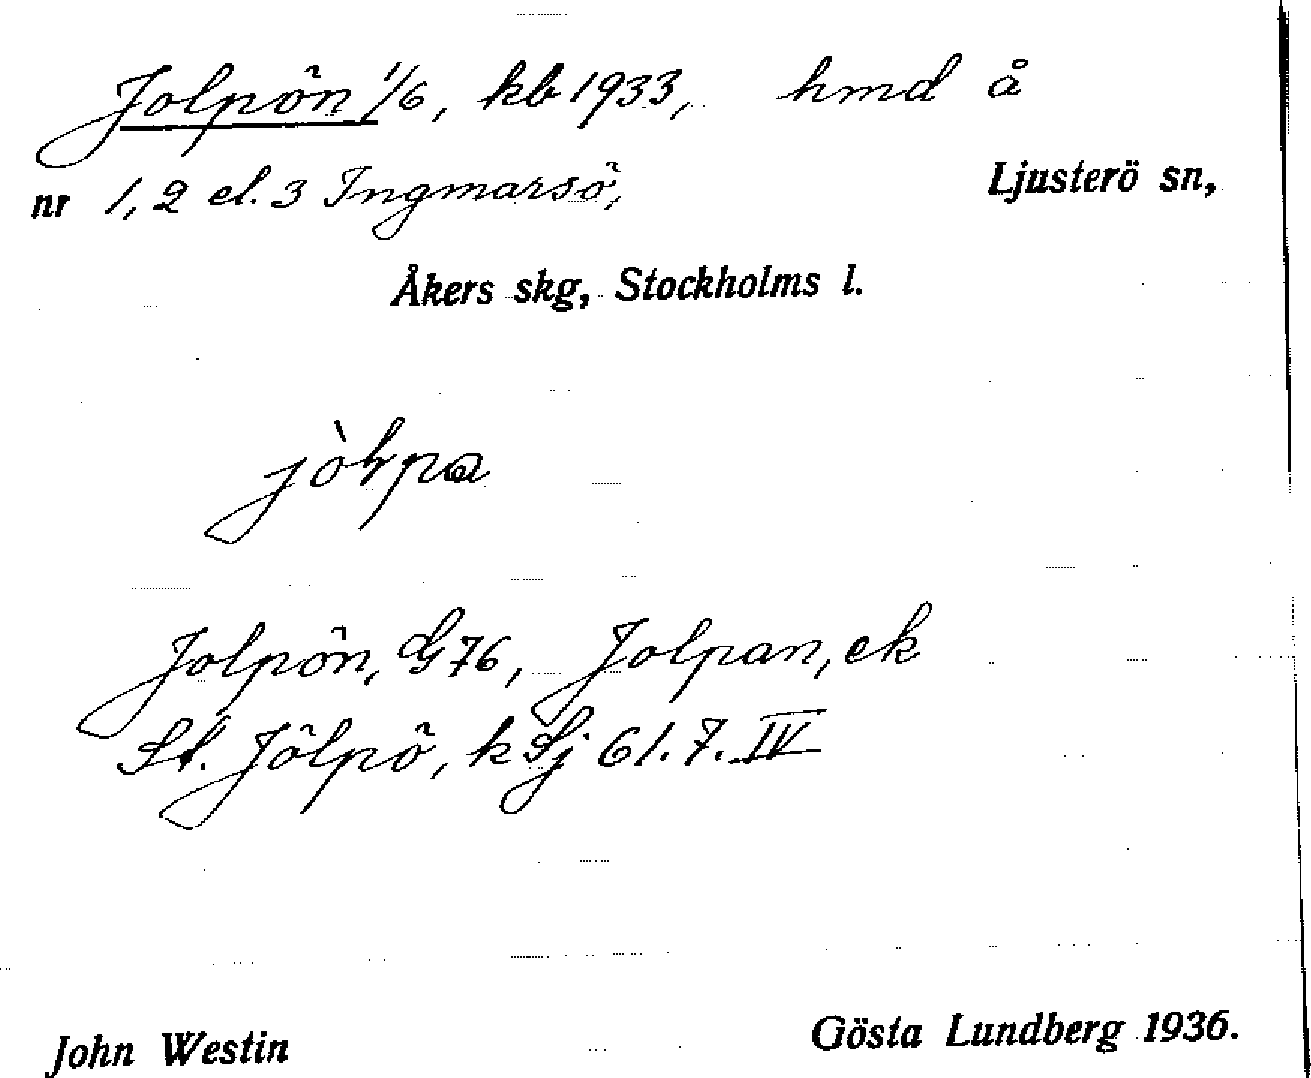 Jolpön 1/6, kb 1933, hmd å
nr 1, 2 el. 3 Ingmarsö, Ljusterö sn,
Åkers skg, Stockholms l.
Jolpön, G76, Jolpan, ek
St. Jölpö, k Sj 61.7.IV
John Westin Gösta Lundberg 1936.